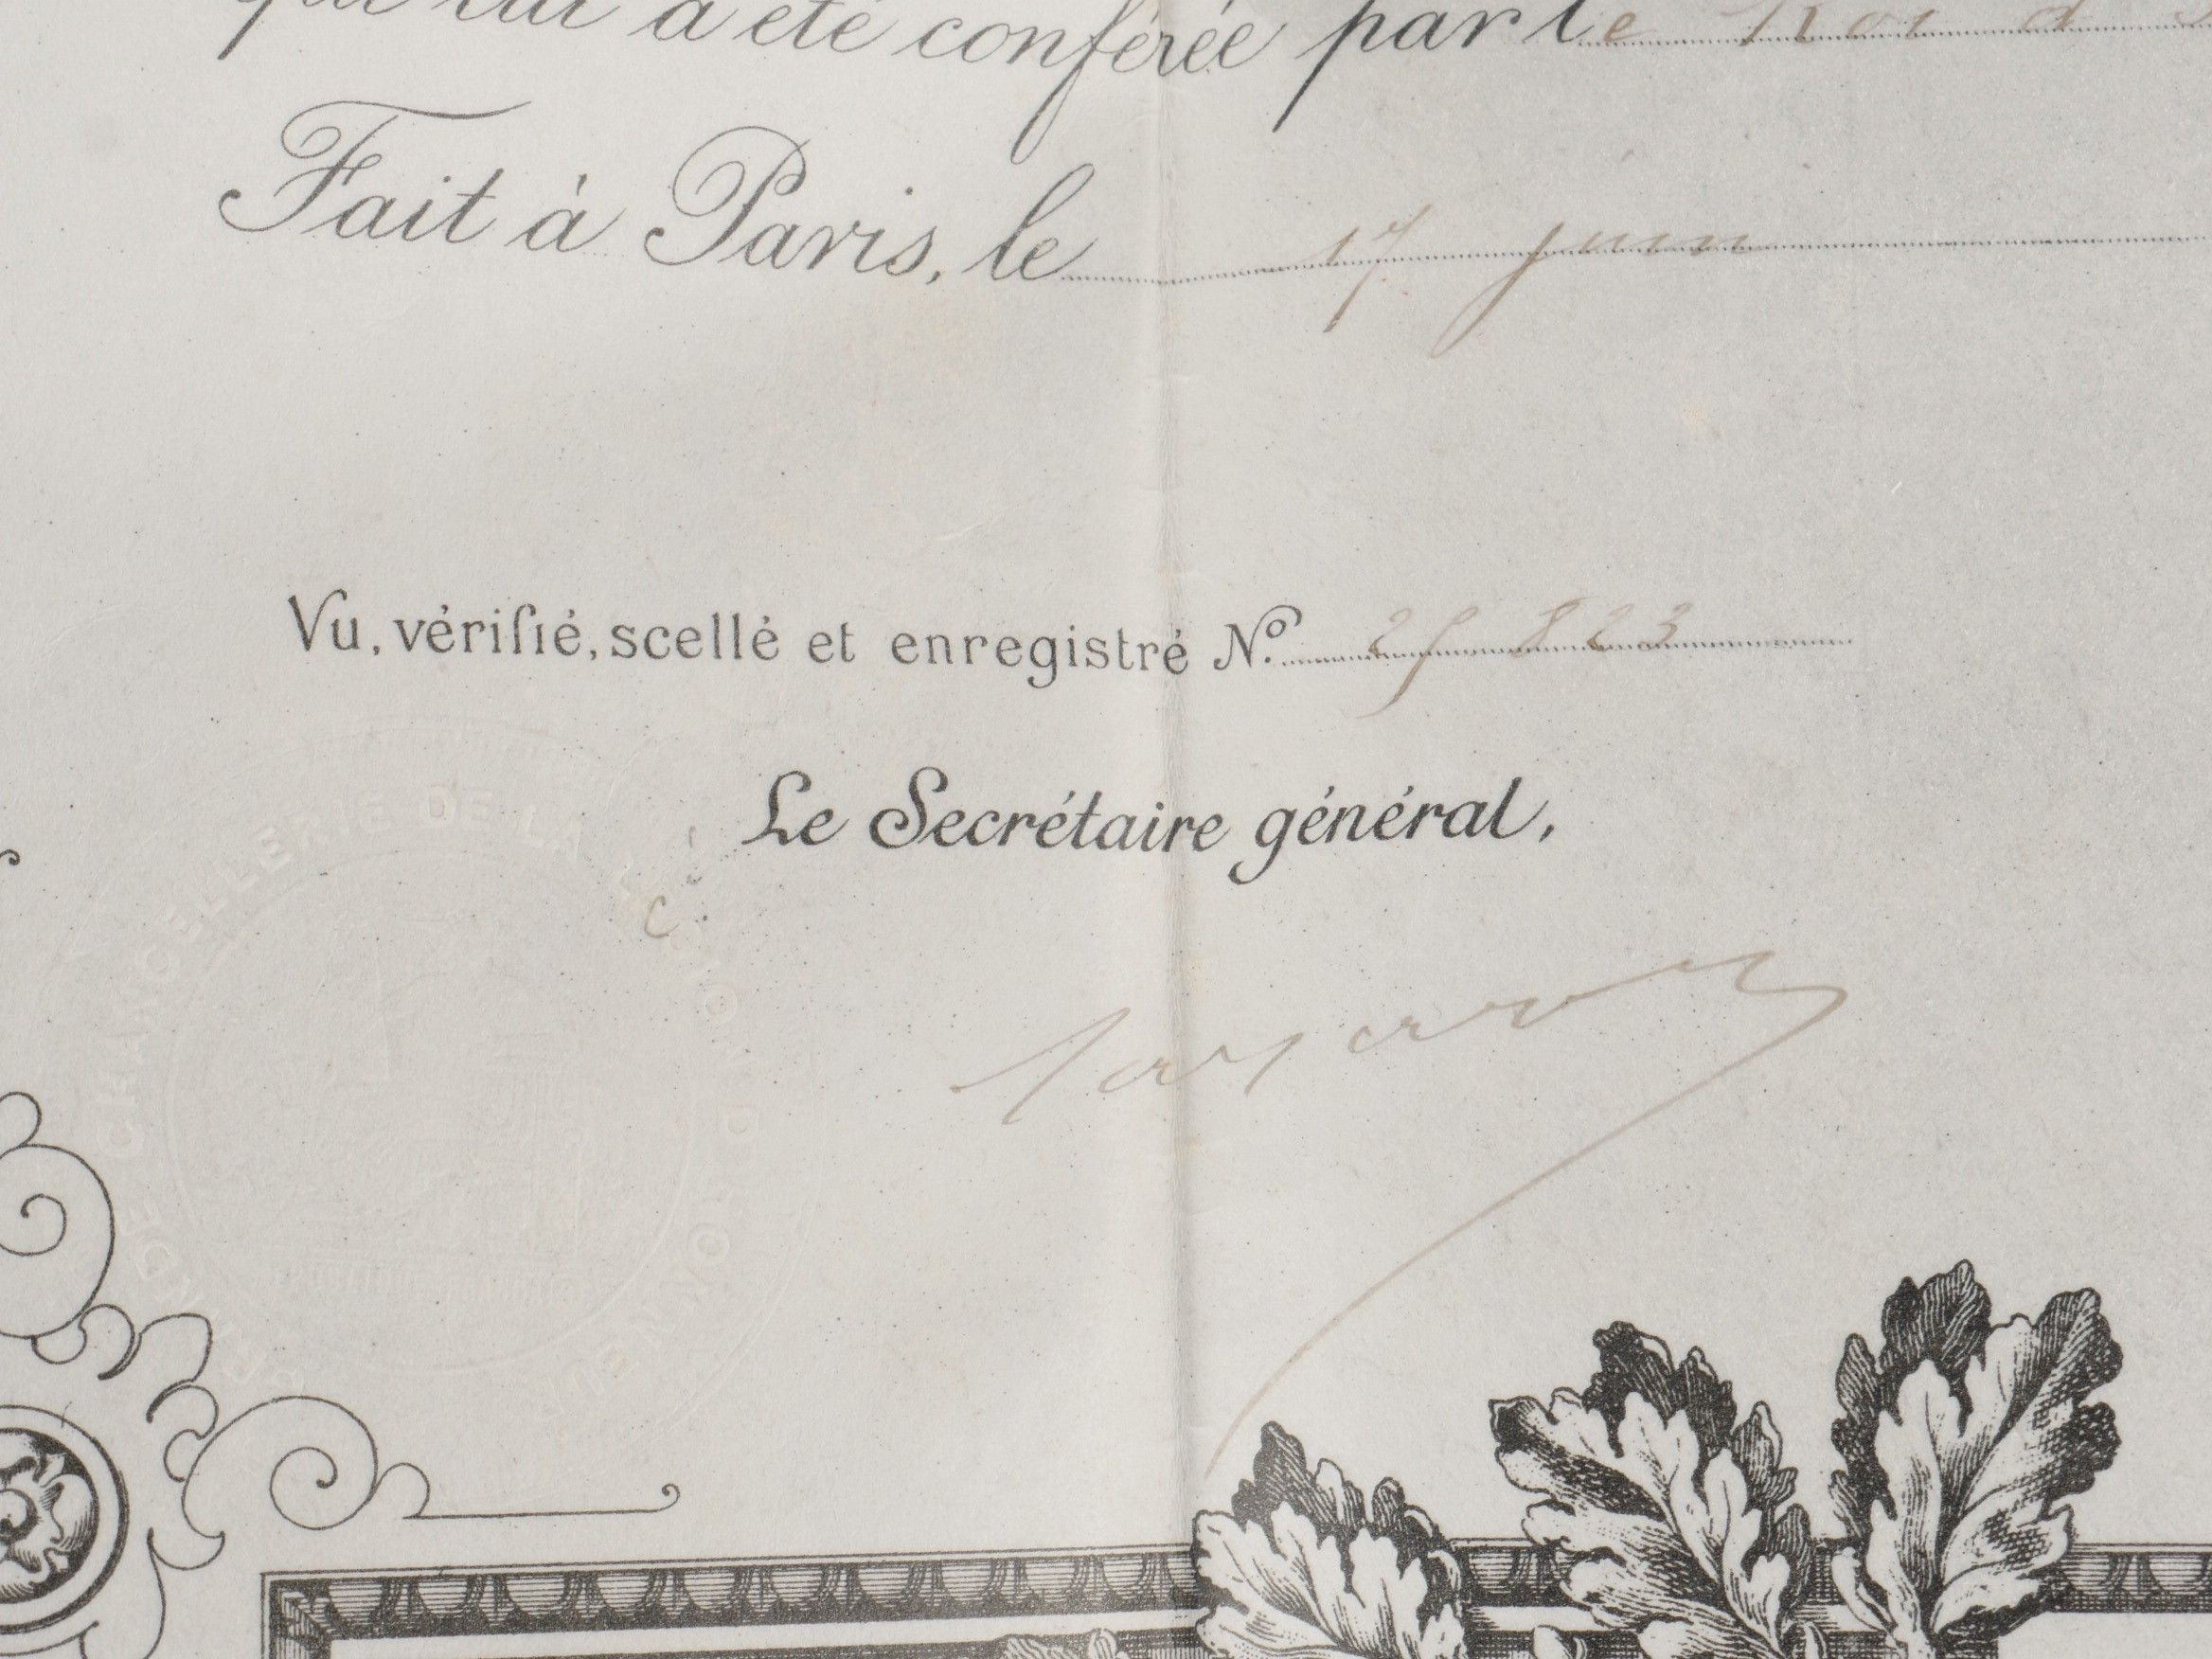 qui lui a été conférée par le Roi d
Fait à Paris, le 17 juin
Vu, vérifié, scellé et enregistré N.º 25 823
Le Secrétaire général,
GRANDE CHANCELLERIE DE LA LÉGION D'HONNEUR